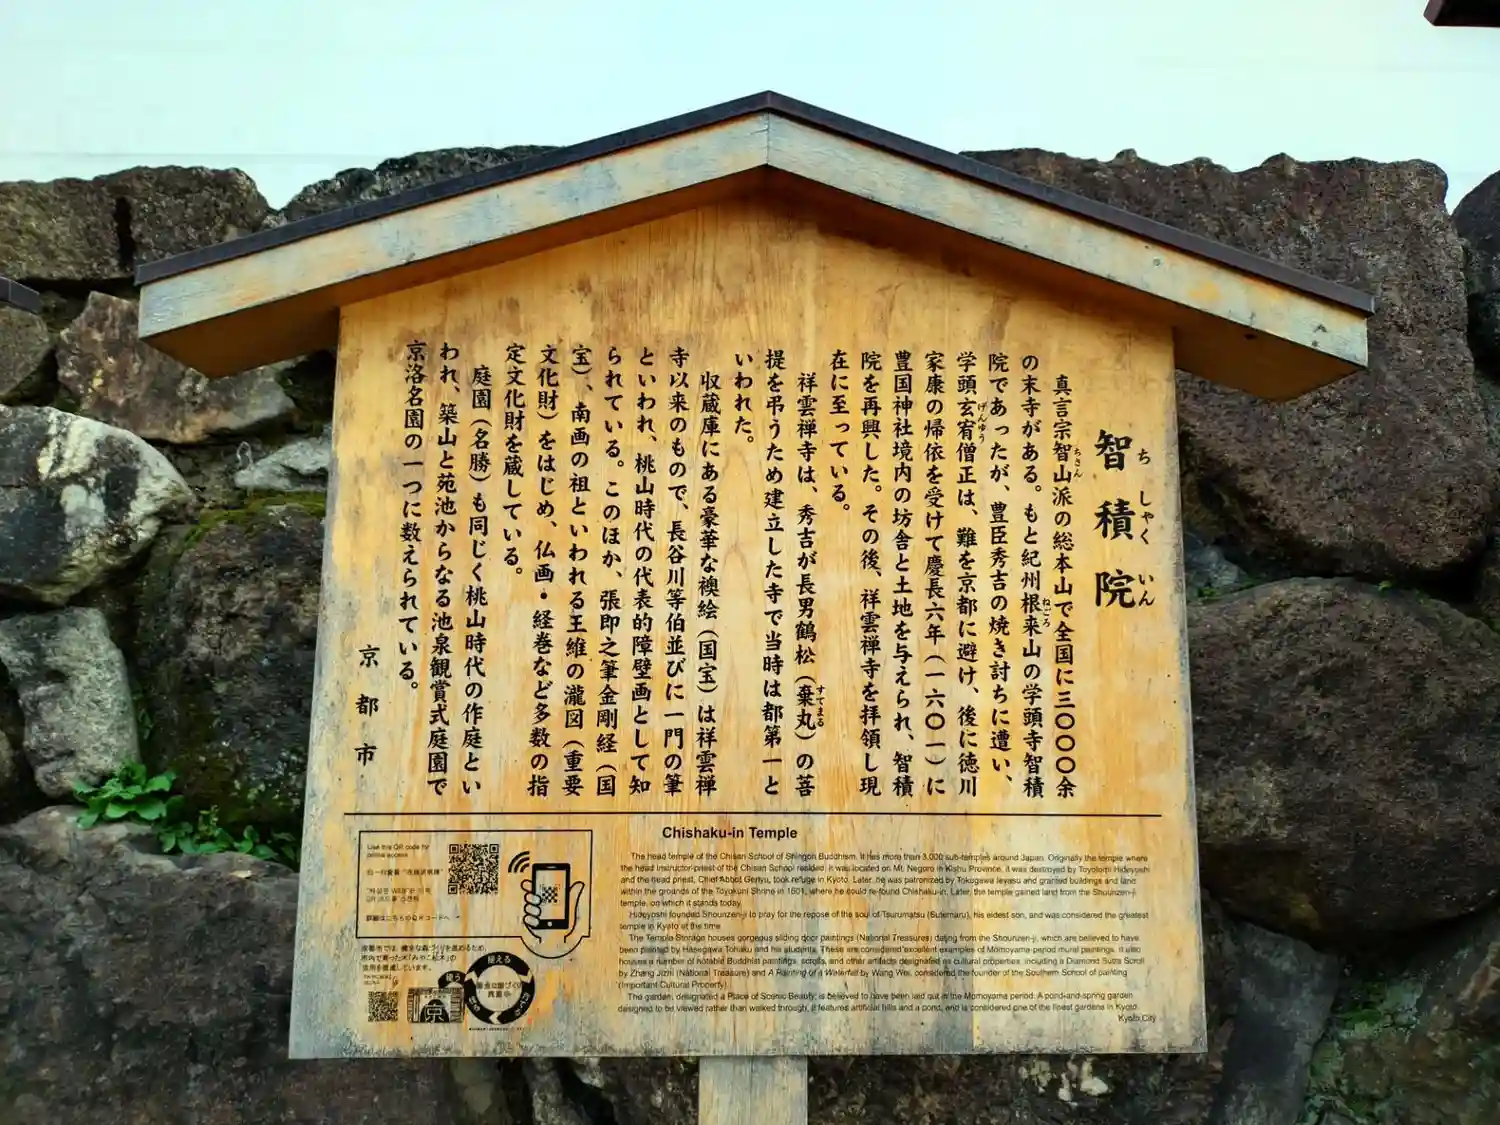 智積院
ちしゃくいん
真言宗智山派の総本山で全国に三〇〇〇余
ちさん
の末寺がある。もと紀州根来山の学頭寺智積
ねごろ
院であったが、豊臣秀吉の焼き討ちに遭い、
学頭玄宥僧正は、難を京都に避け、後に徳川
げんゆう
家康の帰依を受けて慶長六年（一六〇一）に
豊国神社境内の坊舎と土地を与えられ、智積
院を再興した。その後、祥雲禅寺を拝領し現
在に至っている。
祥雲禅寺は、秀吉が長男鶴松（棄丸）の菩
すてまる
提を弔うため建立した寺で当時は都第一と
いわれた。
収蔵庫にある豪華な襖絵（国宝）は祥雲禅
寺以来のもので、長谷川等伯並びに一門の筆
といわれ、桃山時代の代表的障壁画として知
られている。このほか、張即之筆金剛経（国
宝）、南画の祖といわれる王維の瀧図（重要
文化財）をはじめ、仏画・経巻など多数の指
定文化財を蔵している。
庭園（名勝）も同じく桃山時代の作庭とい
われ、築山と苑池からなる池泉観賞式庭園で
京洛名園の一つに数えられている。
京都市
Chishaku-in Temple
The head temple of the Chisan School of Shingon Buddhism. It has more than 3,000 sub-temples around Japan. Originally the temple where
the head instructor-priest of the Chisan School resided, it was located on Mt. Negoro in Kishu Province. It was destroyed by Toyotomi Hideyoshi
and the head priest, Chief Abbot Genyu, took refuge in Kyoto. Later, he was patronized by Tokugawa Ieyasu and granted buildings and land
within the grounds of the Toyokuni Shrine in 1601, where he could re-found Chishaku-in. Later, the temple gained land from the Shounzen-ji
temple, on which it stands today.
Hideyoshi founded Shounzen-ji to pray for the repose of the soul of Tsurumatsu (Sutemaru), his eldest son, and was considered the greatest
temple in Kyoto at the time.
The Temple Storage houses gorgeous sliding door paintings (National Treasures) dating from the Shounzen-ji, which are believed to have
been painted by Hasegawa Tohaku and his students. These are considered excellent examples of Momoyama-period mural paintings. It also
houses a number of notable Buddhist paintings, scrolls, and other artifacts designated as cultural properties, including a Diamond Sutra Scroll
by Zhang Jizhi (National Treasure) and A Painting of a Waterfall by Wang Wei, considered the founder of the Southern School of painting
(Important Cultural Property).
The garden, designated a Place of Scenic Beauty, is believed to have been laid out in the Momoyama period. A pond-and-spring garden
designed to be viewed rather than walked through, it features artificial hills and a pond, and is considered one of the finest gardens in Kyoto.
Kyoto City
Use this QR code for
online access
詳細はこちらのQRコードへ
京都市では、健全な森づくりを進めるため、
市内で育った木「みやこ杣木」の
活用を推進しています。
使う
使える
京